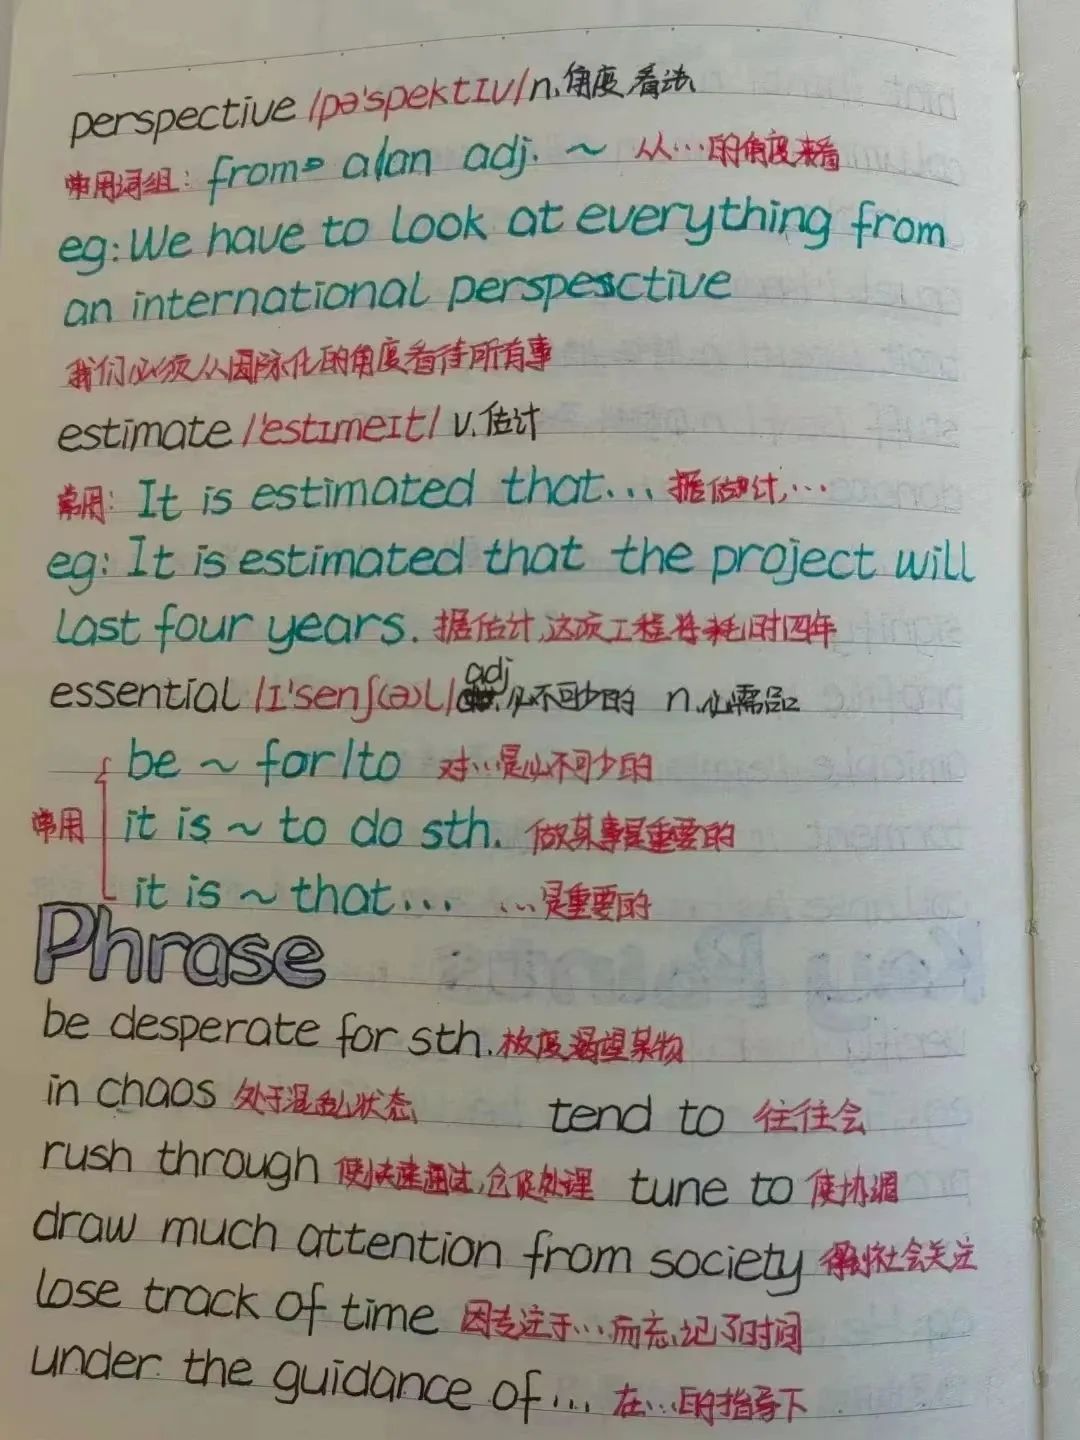 perspective /pə'spektɪv/ n. 角度 看法
常用词组: from a/an adj. ~ 从…的角度来看
eg: We have to look at everything from
an international perspesctive
我们必须从国际化的角度看待所有事
estimate /'estɪmeɪt/ v. 估计
常用: It is estimated that... 据估计,…
eg: It is estimated that the project will
last four years. 据估计,这项工程将耗时四年
essential /ɪ'senʃ(ə)l/ adj. 必不可少的 n. 必需品
be ~ for/to 对…是必不可少的
常用 it is ~ to do sth. 做某事是重要的
it is ~ that... …是重要的
Phrase
be desperate for sth. 极度渴望某物
in chaos 处于混乱状态 tend to 往往会
rush through 使快速通过,仓促处理 tune to 使协调
draw much attention from society 得到社会关注
lose track of time 因专注于…而忘记了时间
under the guidance of... 在…的指导下